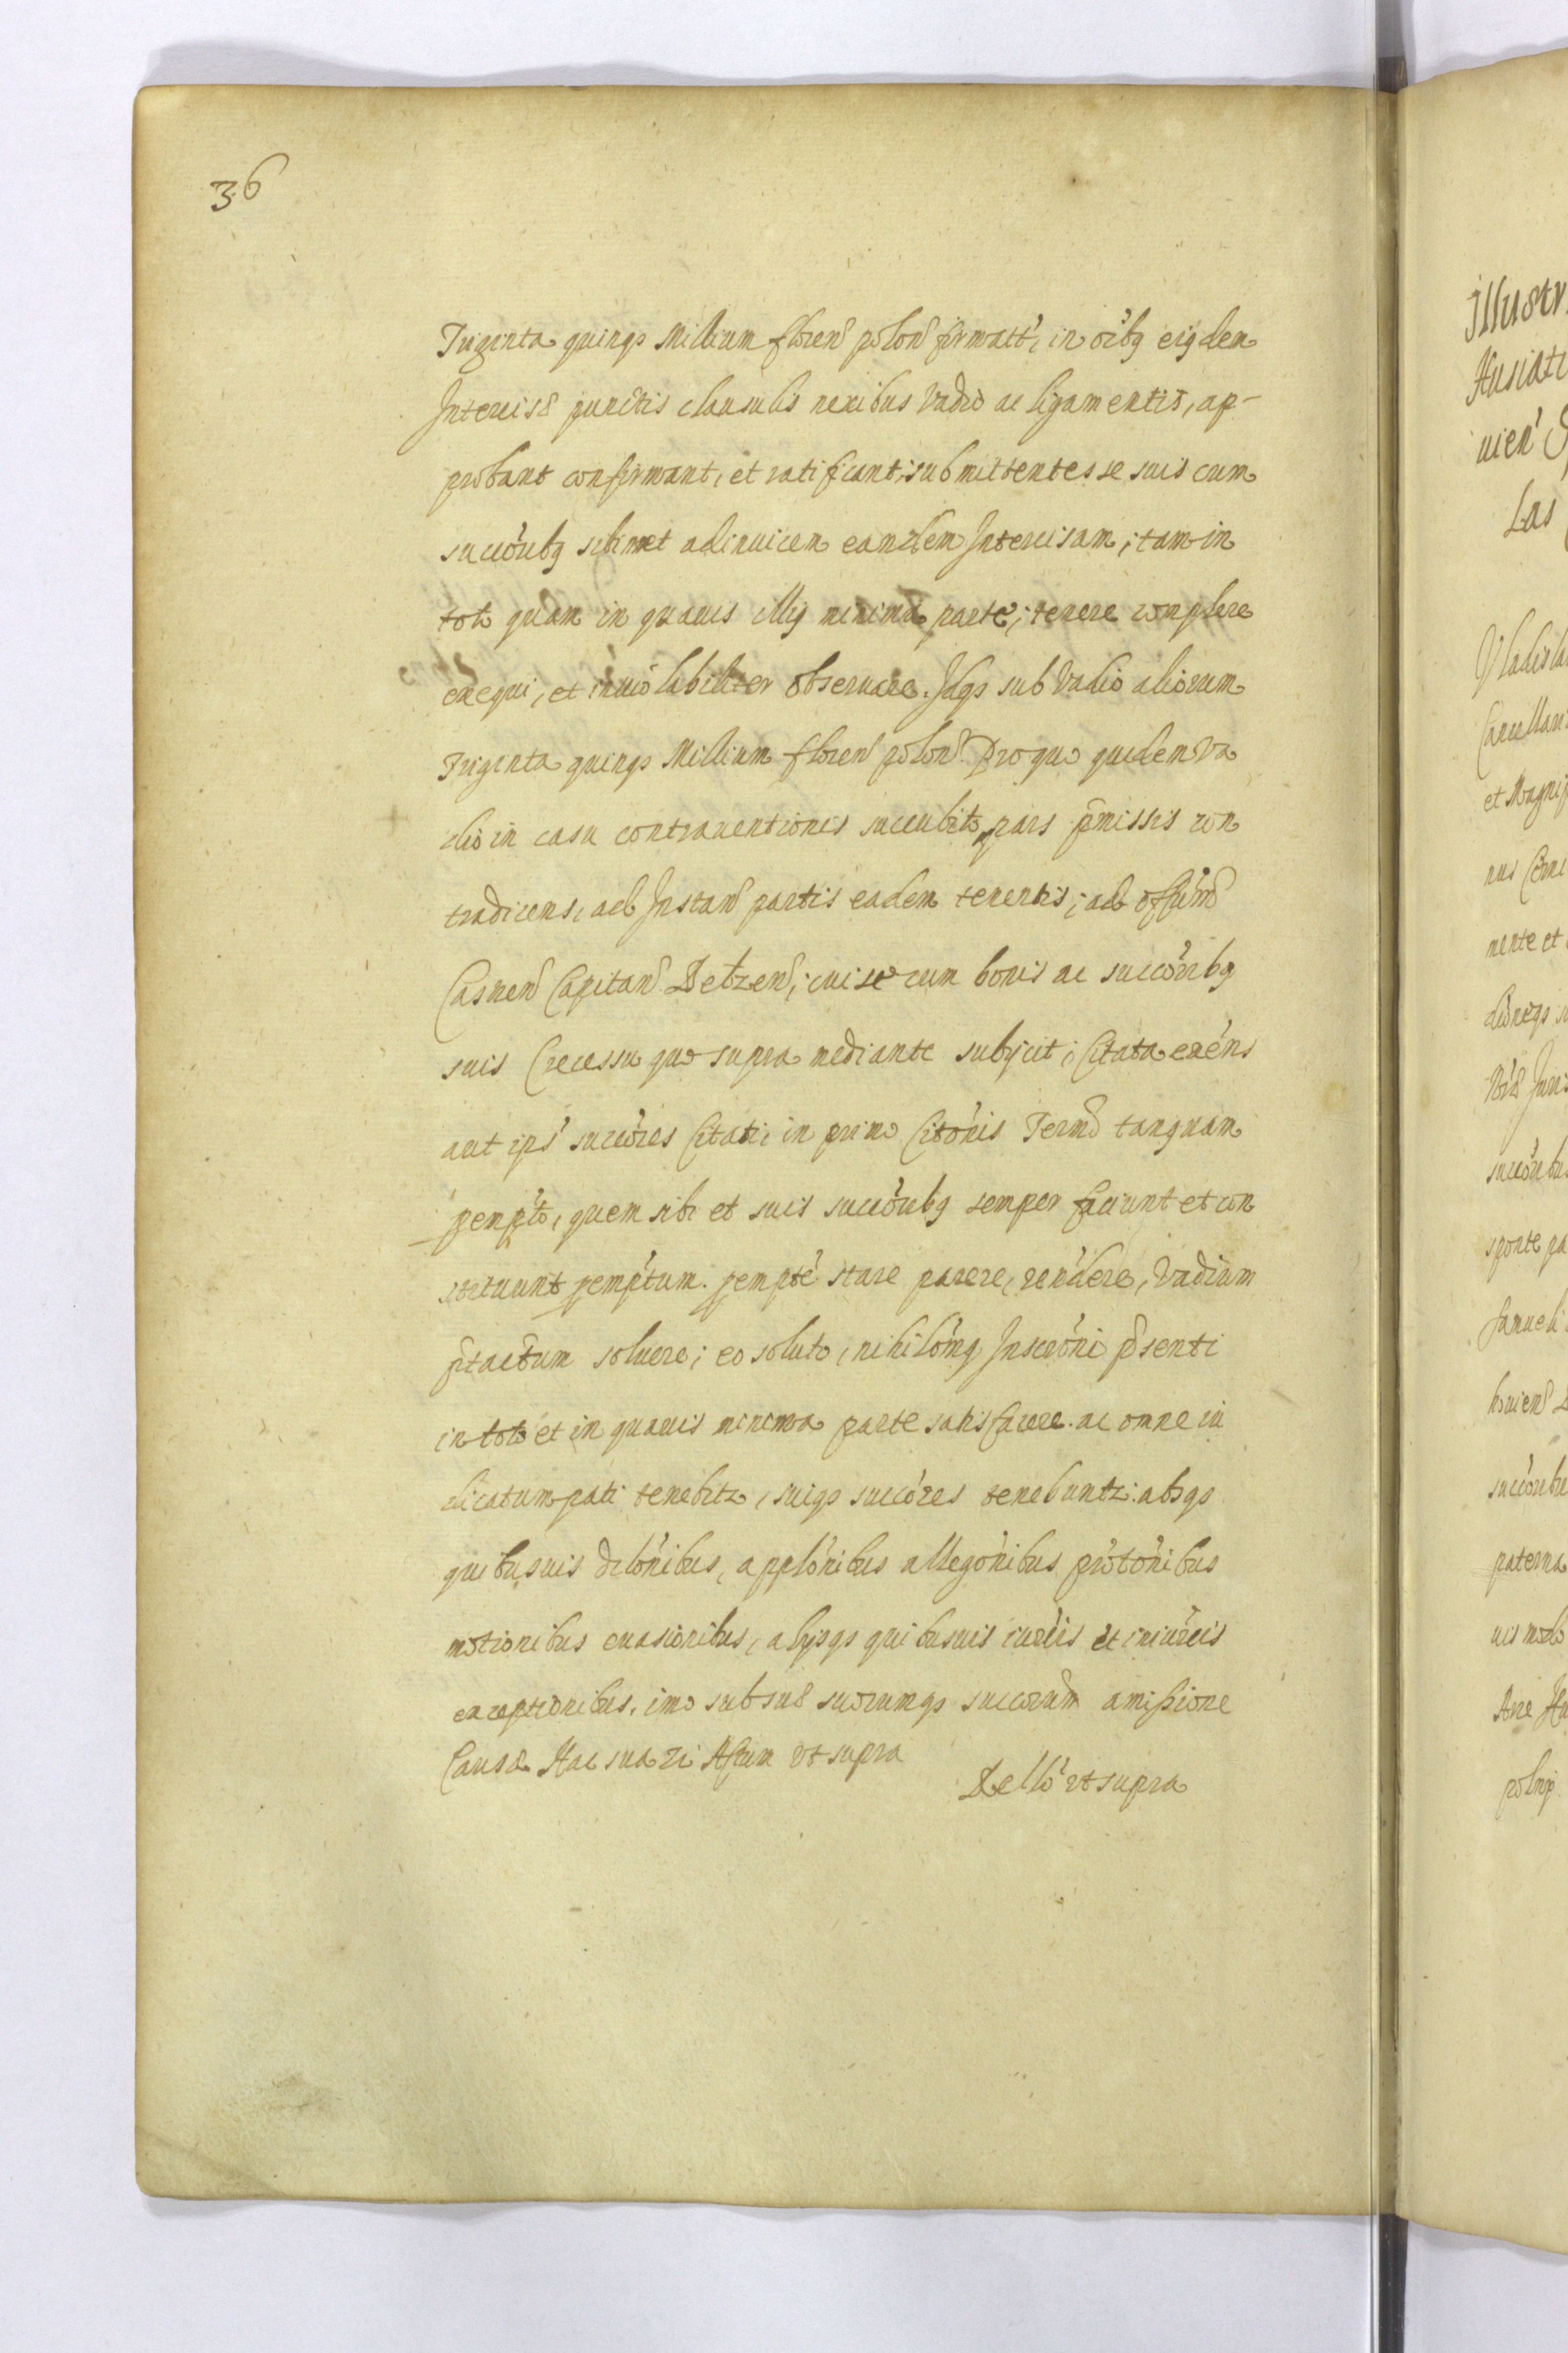 36
Triginta quinqꝫ Millium floren̄ polon̄ firmatt', in oib9 ei9dem
Intercisæ punctis clausulis nexibus Vadio ac ligamentis, ap-
probant confirmant, et ratificant, submittentes se suis cum
succorib9 sibimet adinuicem eandem Intercisam, tam in
toto quam in quauis illi9 minima parte, tenere complere
exequi, et inuiolabiliter obseruare. Idqꝫ sub Vadio aliorum
Triginta quinqꝫ Millium floren̄ polon̄. Pro quo quidem Va
dio in casu contrauentionis succubito, pars p̄missis con
tradicens, ad Instan̄ partis eadem tenentis, ad officium
Castren̄ Capitan̄ Belzen̄, cui se cum bonis ac succorib9
suis Crecessu quo supra mediante subijcit, Citata exens
aut ipsi' succores Citati, in primo Citonis Termo tanquam
pempto, quem sibi et suis succorib9 semper faciunt et con
stituunt pemptum. pempte stare parere, rendere, Vadium
p̄tactum soluere; eo soluto, nihilomi9 Insccroni p̄senti
in toto et in quauis minima parte satisfacere. ac omne iu
dicatum pati tenebitr, suiqꝫ succores tenebuntr: absqꝫ
quibusuis dilonibus, applonibus allegonibus protonibus
motionibus euasionibus, alijsqꝫ quibusuis iuris et iniuris
exceptionibus, imo sub sua suorumqꝫ succorum amissione
Causæ. Hac sua Actum vt supra
vt supra
Illustr
Husiati
uien'
Las
Vladisla
Cancellari
et Magnif
nus
nente et
sponte pa
succoribu
paterna
uis modo